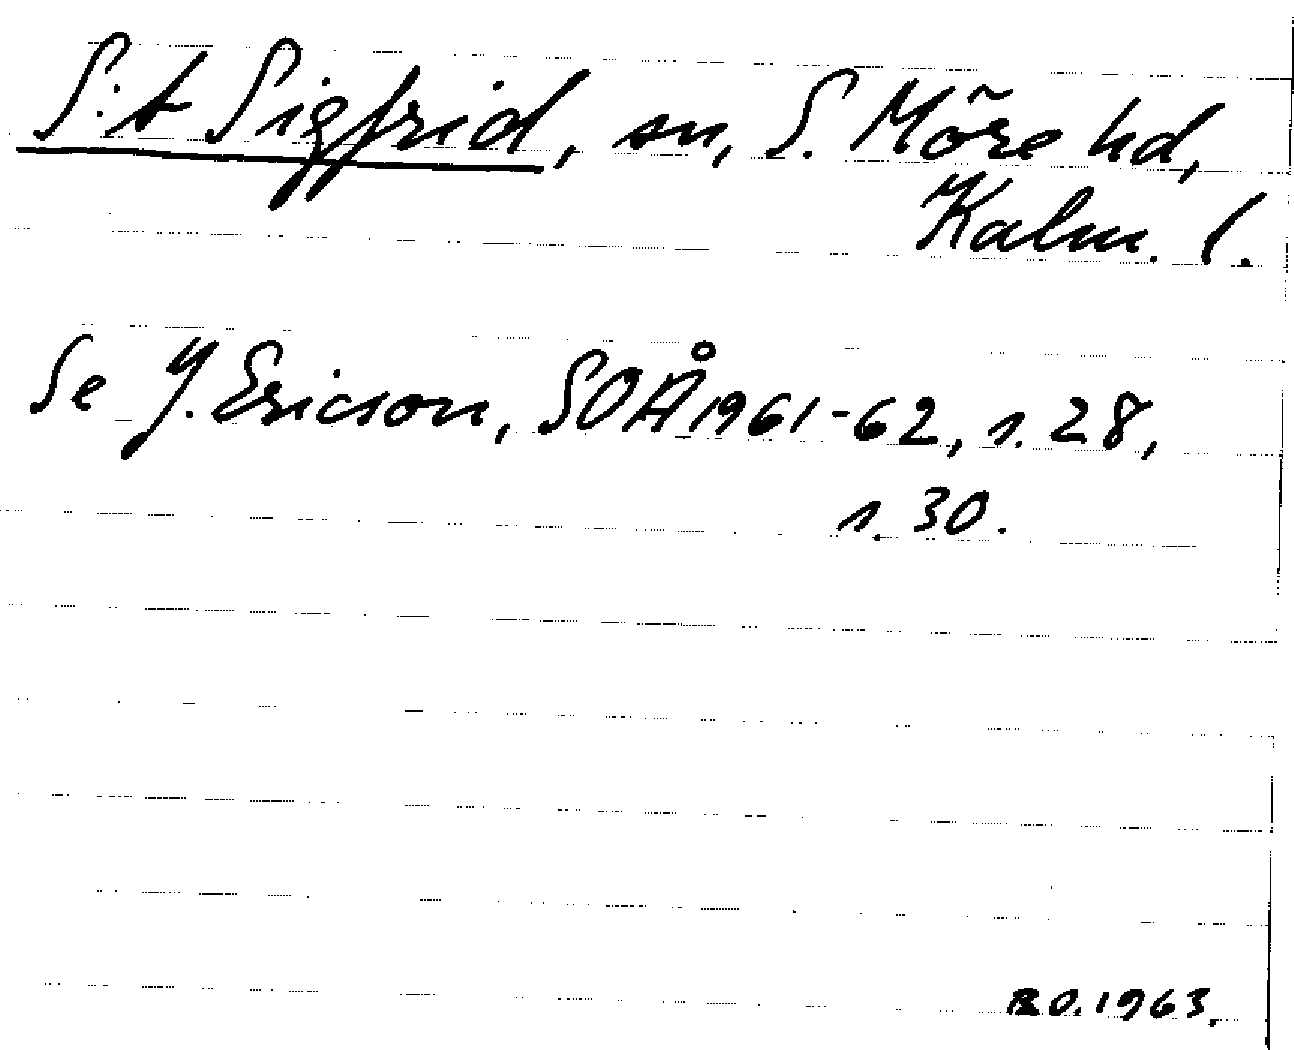 S:t Sigfrid, sn, S. Möre hd,
Kalm. l.
Se J. Ericson, SOÅ 1961-62, s. 28,
s. 30.
R.O. 1963.